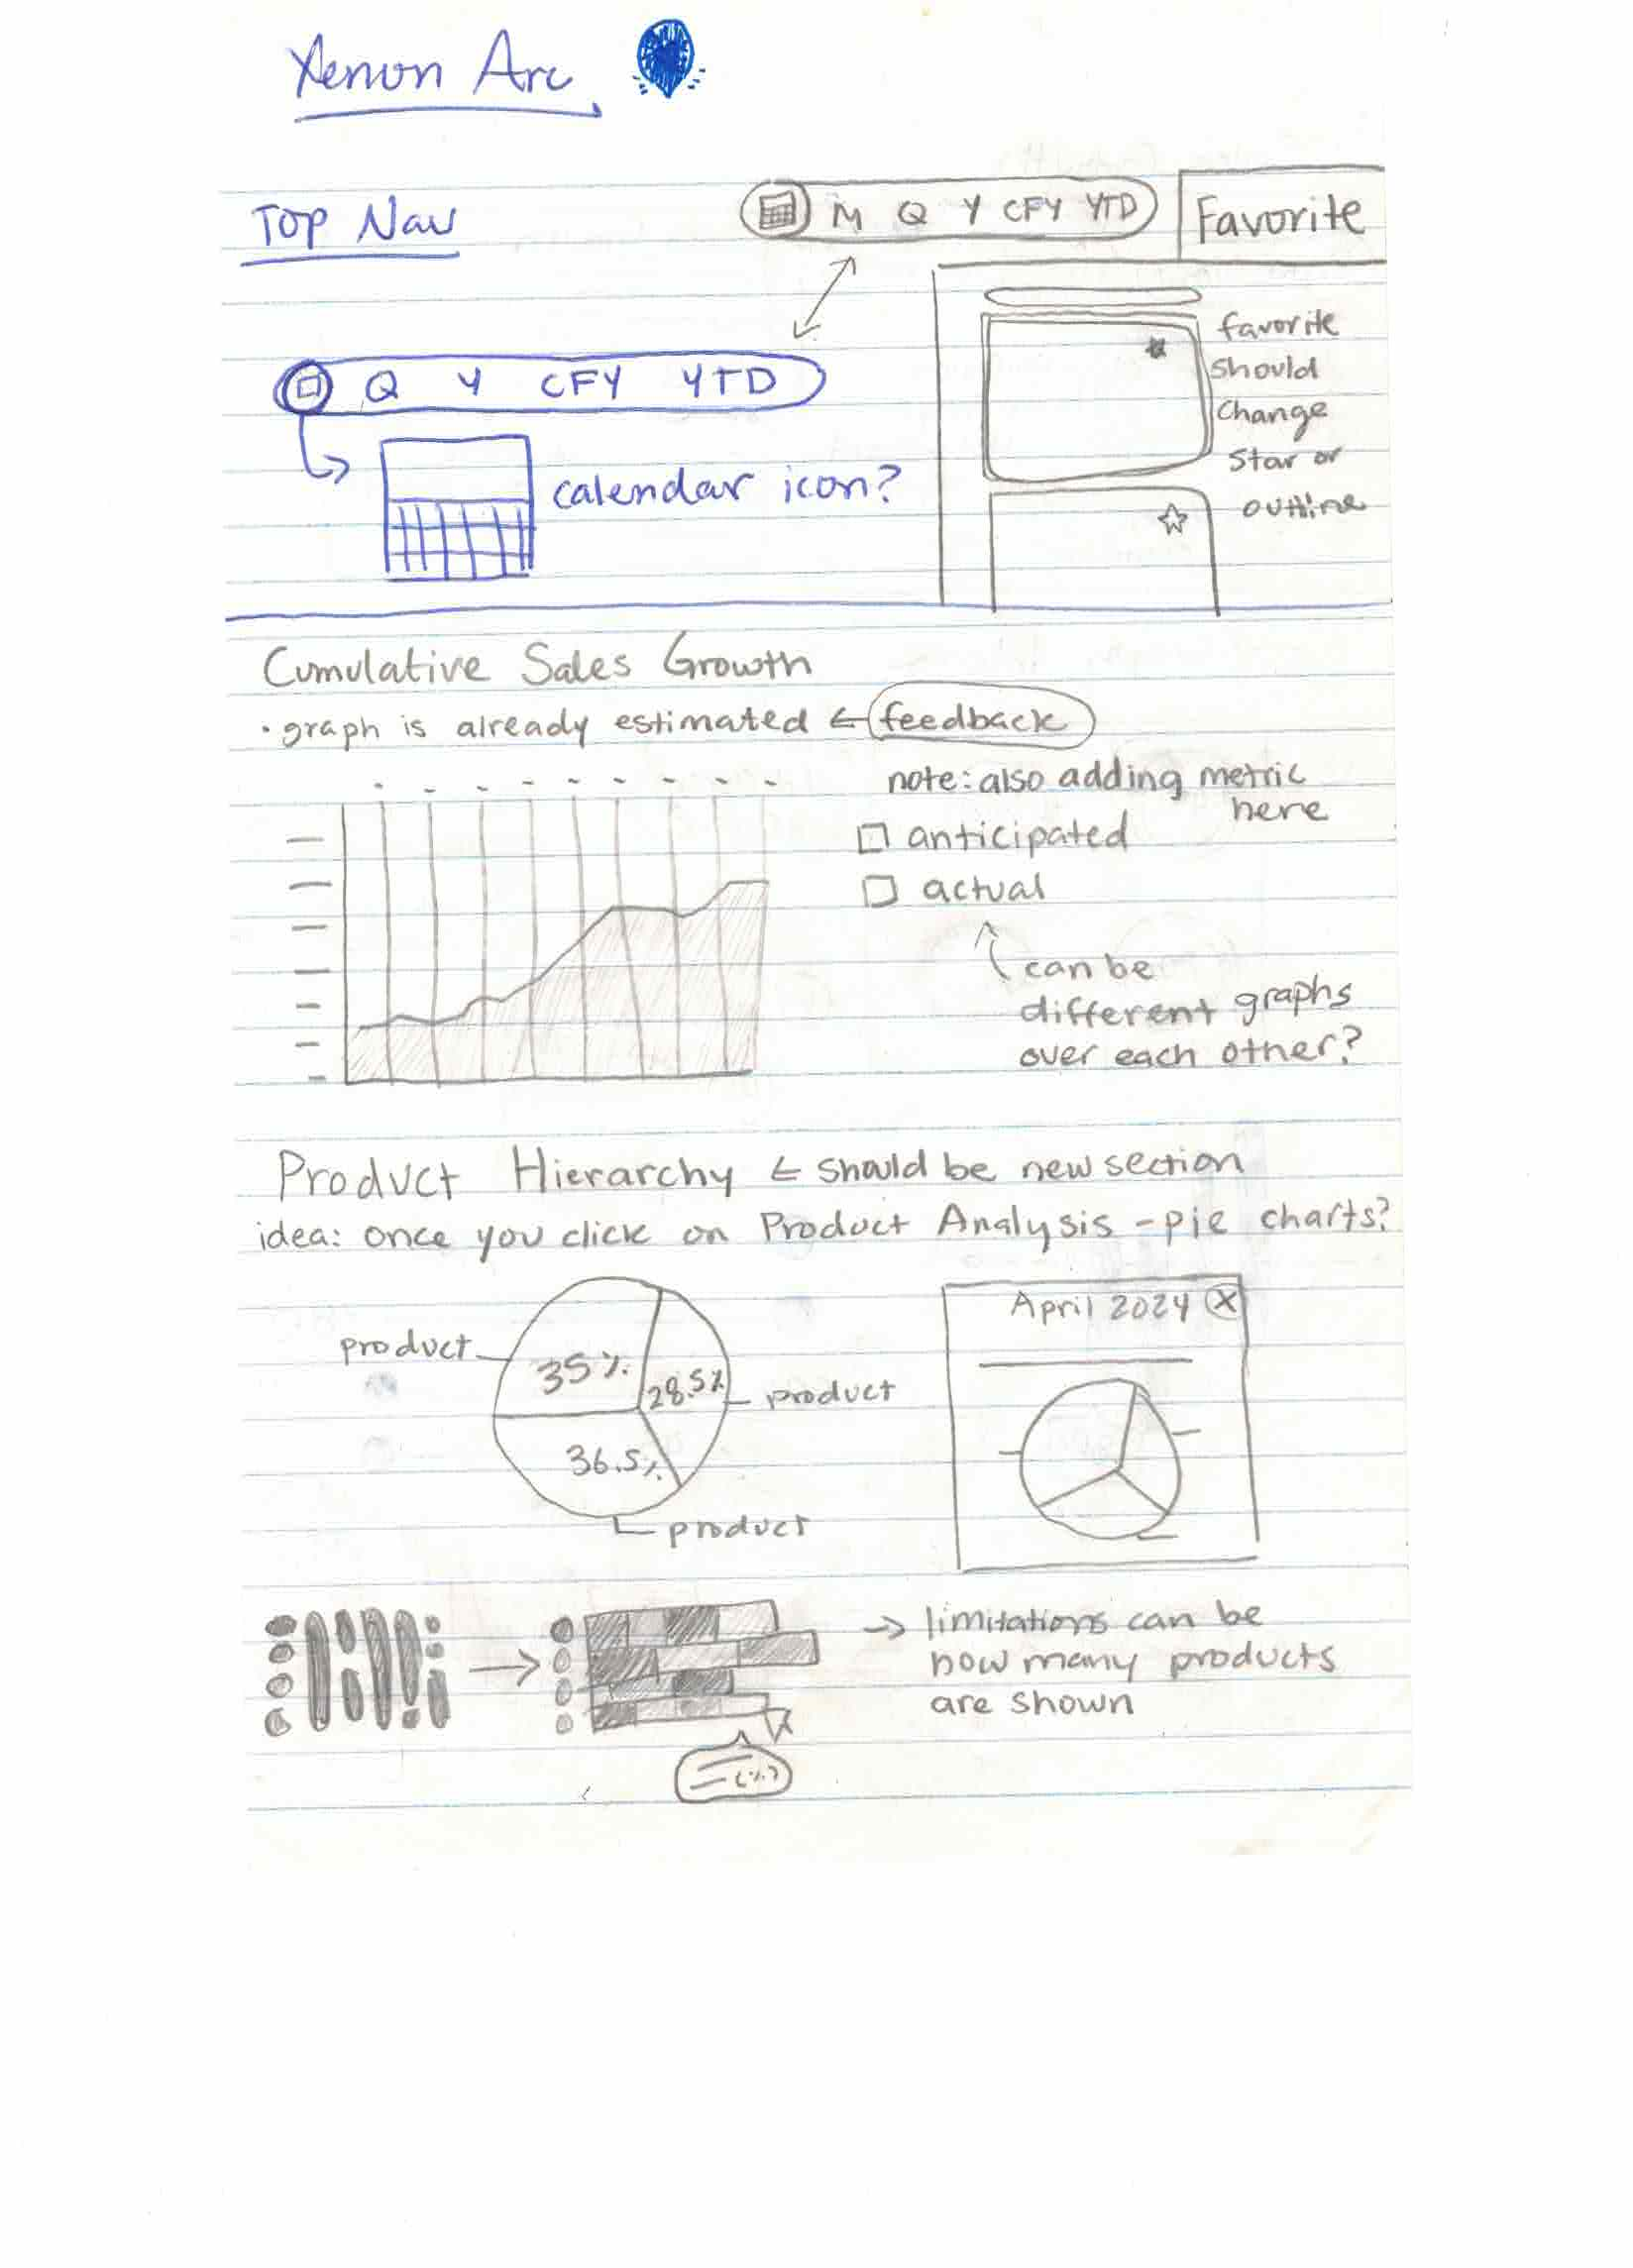 Xenon Arc
Top Nav
M Q Y CFY YTD
Favorite
favorite
should
change
star or
outline
Q Y CFY YTD
calendar icon?
Cumulative Sales Growth
· graph is already estimated ← feedback
note: also adding metric
here
anticipated
actual
can be
different graphs
over each other?
Product Hierarchy ← should be new section
idea: once you click on Product Analysis - pie charts?
product
35%
28.5%
product
36.5%
product
April 2024 X
→ limitations can be
how many products
are shown
(%)